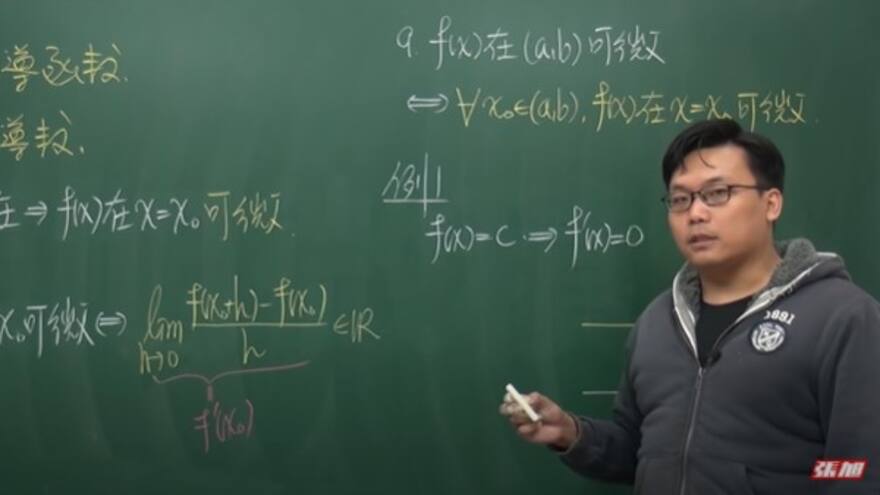 導函數.
導數.
在 ⇒ f(x) 在 x=x₀ 可微.
x₀ 可微 ⇔ lim h→0 f(x₀+h)-f(x₀) / h ∈ℝ
f'(x₀)
9. f(x) 在 (a,b) 可微
⇔ ∀x₀∈(a,b), f(x) 在 x=x₀ 可微.
例1
f(x)=C ⇒ f'(x)=0
0891
張旭